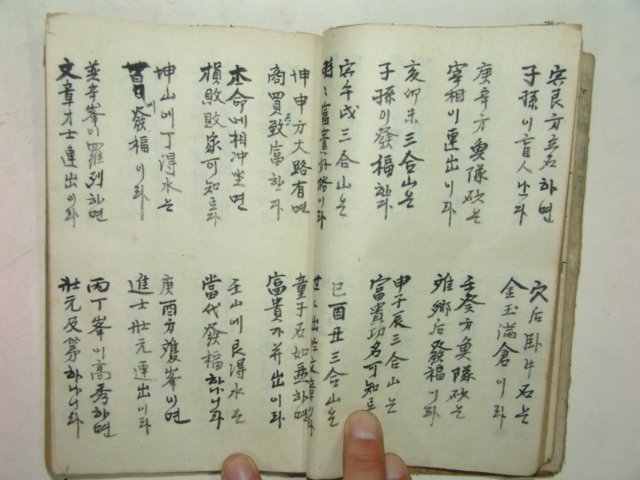 寅艮方立石하면
子孫이盲人난다
庚辛方魚隊砂는
宰相이連出이라
亥卯未三合山은
子孫이發福한다
寅午戌三合山은
富貴 格이라
穴后臥牛石는
金玉滿倉이라
壬癸方魚隊砂는
離鄕后發福이라
申子辰三合山은
富貴功名可知로다
巳酉丑三合山은
世〻出於文章이라
坤申方大路有면
商買致富한다
木命에相冲坐면
損敗敗家可知로다
坤山에丁得水는
發福이라
巽辛峯이羅列하면
文章才士連出이라
童子石如無하면
富貴가幷出이라
壬山에艮得水는
當代發福하나니라
庚酉方雙峯이면
進士壯元連出이라
丙丁峯이高秀하면
壯元及第하나니라